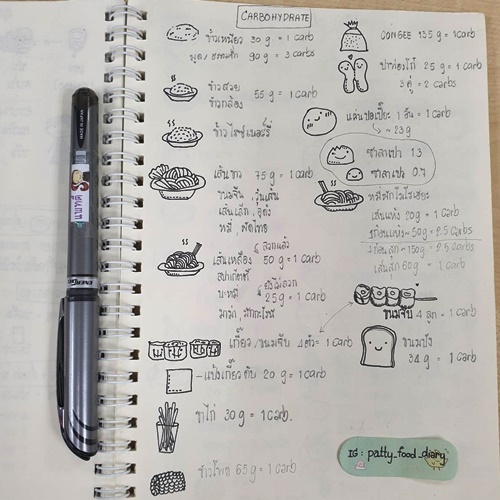 CARBOHYDRATE
ข้าวเหนียว 30 g = 1 carb
90 g = 3 carbs
ข้าวสวย
ข้าวกล้อง
55 g = 1 carb
ข้าวไรซ์เบอร์รี่
เส้นขาว 75 g = 1 carb
ขนมจีน, วุ้นเส้น
เส้นเล็ก,
หมี่, ผัดไทย
ลวกแล้ว
เส้นเหลือง 50 g = 1 carb
สปาเก็ตตี้
ยังไม่ลวก
บะหมี่ 25 g = 1 carb
มาม่า, มักกะโรนี
เกี๊ยว/ขนมจีบ 4 ตัว = 1 carb
แป้งเกี๊ยวดิบ 20 g = 1 carb
ขาไก่ 30 g = 1 carb.
ข้าวโพด 65 g = 1 carb
CONGEE 135 g = 1 carb
ปาท่องโก๋ 25 g = 1 carb
3 คู่ = 2 carbs
แผ่นปอเปี๊ยะ 1 อัน = 1 carb
~ 23 g
ซาลาเปา 1.3
ซาลาเปา 0.7
หมี่ผักโมโรเฮยะ
เส้นแห้ง 20 g = 1 carb
1 ก้อนแห้ง ~ 50 g = 2.5 carbs
1 ก้อนสุก ~ 150 g = 2.5 carbs
เส้นสุก 60 g = 1 carb
ขนมจีบ 4 ลูก = 1 carb
ขนมปัง
34 g = 1 carb
IG : patty_food_diary
MADE IN JAPAN